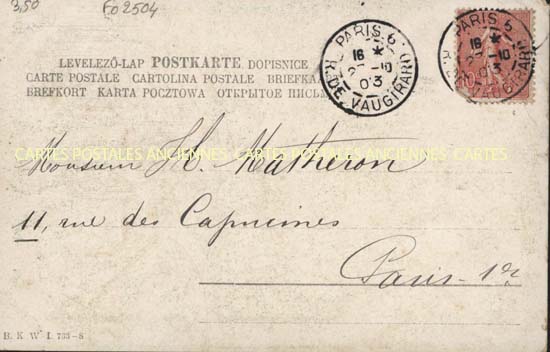 3,50
FO 2504
LEVELEZŐ-LAP POSTKARTE DOPISNICE
CARTE POSTALE CARTOLINA POSTALE BRIEFKA
BREFKORT KARTA POCZTOWA ОТКРЫТОЕ ПИСЬ
PARIS 6
16 *
2 - 10
03
R. DE VAUGIRARD
PARIS 6
16 *
10
03
CARTES POSTALES ANCIENNES CARTES POSTALES ANCIENNES CARTES
Monsieur H. Matheron
11, rue des Capucines
Paris - 1er
B. K. W. I. 733-8